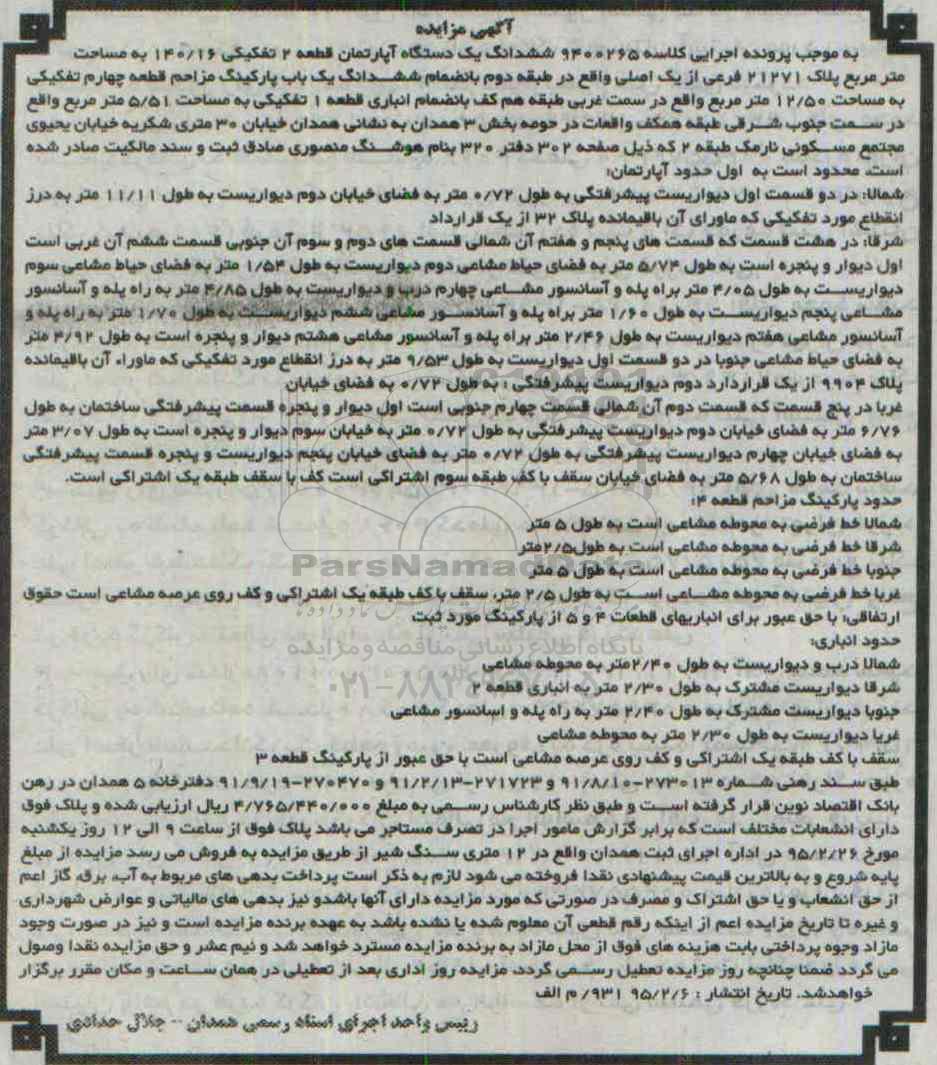 آگهی مزایده
به موجب پرونده اجرایی کلاسه ۹۴۰۰۲۶۵ ششدانگ یک دستگاه آپارتمان قطعه ۲ تفکیکی ۱۴۰/۱۶ به مساحت
متر مربع پلاک ۲۱۲۷۱ فرعی از یک اصلی واقع در طبقه دوم بانضمام ششدانگ یک باب پارکینگ مزاحم قطعه چهارم تفکیکی
به مساحت ۱۲/۵۰ متر مربع واقع در سمت غربی طبقه هم کف بانضمام انباری قطعه ۱ تفکیکی به مساحت ۵/۵۱ متر مربع واقع
در سمت جنوب شرقی طبقه همکف واقعات در حومه بخش ۳ همدان به نشانی همدان خیابان ۳۰ متری شکریه خیابان یحیوی
مجتمع مسکونی نارمک طبقه ۲ که ذیل صفحه ۳۰۲ دفتر ۳۲۰ بنام هوشنگ منصوری صادق ثبت و سند مالکیت صادر شده
است. محدود است به اول حدود آپارتمان:
شمالا: در دو قسمت اول دیواریست پیشرفتگی به طول ۰/۷۲ متر به فضای خیابان دوم دیواریست به طول ۱۱/۱۱ متر به درز
انقطاع مورد تفکیکی که ماورای آن باقیمانده پلاک ۳۲ از یک قرارداد
شرقا: در هشت قسمت که قسمت های پنجم و هفتم آن شمالی قسمت های دوم و سوم آن جنوبی قسمت ششم آن غربی است
اول دیوار و پنجره است به طول ۵/۷۴ متر به فضای حیاط مشاعی دوم دیواریست به طول ۱/۵۴ متر به فضای حیاط مشاعی سوم
دیواریست به طول ۴/۰۵ متر براه پله و آسانسور مشاعی چهارم درب و دیواریست به طول ۴/۸۵ متر به راه پله و آسانسور
مشاعی پنجم دیواریست به طول ۱/۶۰ متر براه پله و آسانسور مشاعی ششم دیواریست به طول ۱/۷۰ متر به راه پله و
آسانسور مشاعی هفتم دیواریست به طول ۲/۴۶ متر براه پله و آسانسور مشاعی هشتم دیوار و پنجره است به طول ۴/۹۲ متر
به فضای حیاط مشاعی جنوبا در دو قسمت اول دیواریست به طول ۹/۵۳ متر به درز انقطاع مورد تفکیکی که ماوراء آن باقیمانده
پلاک ۹۹۰۴ از یک قراردارد دوم دیواریست پیشرفتگی : به طول ۰/۷۲ به فضای خیابان
غربا در پنج قسمت که قسمت دوم آن شمالی قسمت چهارم جنوبی است اول دیوار و پنجره قسمت پیشرفتگی ساختمان به طول
۶/۷۶ متر به فضای خیابان دوم دیواریست پیشرفتگی به طول ۰/۷۲ متر به خیابان سوم دیوار و پنجره است به طول ۳/۰۷ متر
به فضای خیابان چهارم دیواریست پیشرفتگی به طول ۰/۷۲ متر به فضای خیابان پنجم دیواریست و پنجره قسمت پیشرفتگی
ساختمان به طول ۵/۶۸ متر به فضای خیابان سقف با کف طبقه سوم اشتراکی است کف با سقف طبقه یک اشتراکی است.
حدود پارکینگ مزاحم قطعه ۴:
شمالا خط فرضی به محوطه مشاعی است به طول ۵ متر
شرقا خط فرضی به محوطه مشاعی است به طول۲/۵متر
جنوبا خط فرضی به محوطه مشاعی است به طول ۵ متر
غربا خط فرضی به محوطه مشاعی است به طول ۲/۵ متر، سقف با کف طبقه یک اشتراکی و کف روی عرصه مشاعی است حقوق
ارتفاقی: با حق عبور برای انباریهای قطعات ۴ و ۵ از پارکینگ مورد ثبت
حدود انباری:
شمالا درب و دیواریست به طول ۲/۴۰متر به محوطه مشاعی
شرقا دیواریست مشترک به طول ۲/۳۰ متر به انباری قطعه ۲
جنوبا دیواریست مشترک به طول ۲/۴۰ متر به راه پله و اسانسور مشاعی
غربا دیواریست به طول ۲/۳۰ متر به محوطه مشاعی
سقف با کف طبقه یک اشتراکی و کف روی عرصه مشاعی است با حق عبور از پارکینگ قطعه ۳
طبق سند رهنی شماره ۲۷۳۰۱۳-۹۱/۸/۱۰ و ۲۷۱۷۲۳-۹۱/۲/۱۳ و ۲۷۰۴۷۰-۹۱/۹/۱۹ دفترخانه ۵ همدان در رهن
بانک اقتصاد نوین قرار گرفته است و طبق نظر کارشناس رسمی به مبلغ ۴/۷۶۵/۴۴۰/۰۰۰ ریال ارزیابی شده و پلاک فوق
دارای انشعابات مختلف است که برابر گزارش مامور اجرا در تصرف مستاجر می باشد پلاک فوق از ساعت ۹ الی ۱۲ روز یکشنبه
مورخ ۹۵/۲/۲۶ در اداره اجرای ثبت همدان واقع در ۱۲ متری سنگ شیر از طریق مزایده به فروش می رسد مزایده از مبلغ
پایه شروع و به بالاترین قیمت پیشنهادی نقدا فروخته می شود لازم به ذکر است پرداخت بدهی های مربوط به آب، برق، گاز اعم
از حق انشعاب و یا حق اشتراک و مصرف در صورتی که مورد مزایده دارای آنها باشدو نیز بدهی های مالیاتی و عوارض شهرداری
و غیره تا تاریخ مزایده اعم از اینکه رقم قطعی آن معلوم شده یا نشده باشد به عهده برنده مزایده است و نیز در صورت وجود
مازاد وجوه پرداختی بابت هزینه های فوق از محل مازاد به برنده مزایده مسترد خواهد شد و نیم عشر و حق مزایده نقدا وصول
می گردد ضمنا چنانچه روز مزایده تعطیل رسمی گردد، مزایده روز اداری بعد از تعطیلی در همان ساعت و مکان مقرر برگزار
خواهدشد. تاریخ انتشار : ۹۵/۲/۶ ۹۳۱/ م الف
رییس واحد اجرای اسناد رسمی همدان - جلال حدادی
ParsNamadData
پایگاه اطلاع رسانی مناقصه و مزایده